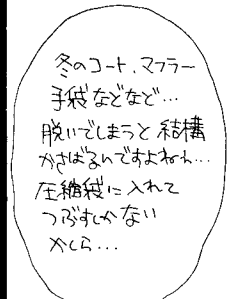 冬のコート、マフラー
手袋などなど…
脱いでしまうと結構
かさばるんですよねぇ…
圧縮袋に入れて
つぶすしかない
かしら…